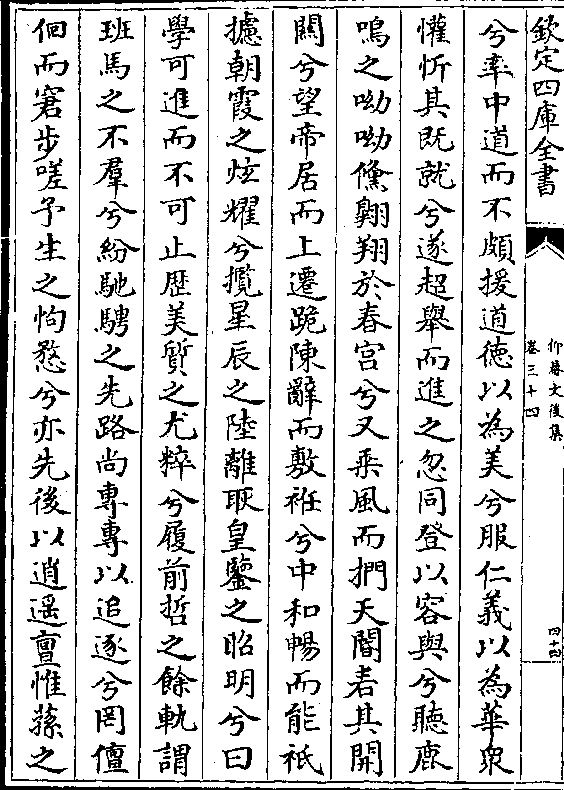 欽定四庫全書
抑菴文後集
卷三十四
四十四
兮率中道而不頗援道德以為美兮服仁義以為華衆
懽忻其既就兮遂超舉而進之忽同登以容與兮聽鹿
鳴之呦呦儻翺翔於春宫兮又乗風而捫天閽𦕅其開
闗兮望帝居而上遷跪陳辭而敷袵兮中和暢而能祇
攄朝霞之炫燿兮攬星辰之陸離耿皇鑒之昭明兮曰
學可進而不可止歴美質之尤粹兮履前哲之餘軌謂
班馬之不羣兮紛馳騁之先路尚專專以追逐兮罔儃
佪而窘步嗟予生之怐愗兮亦先後以逍遥亶惟蓀之